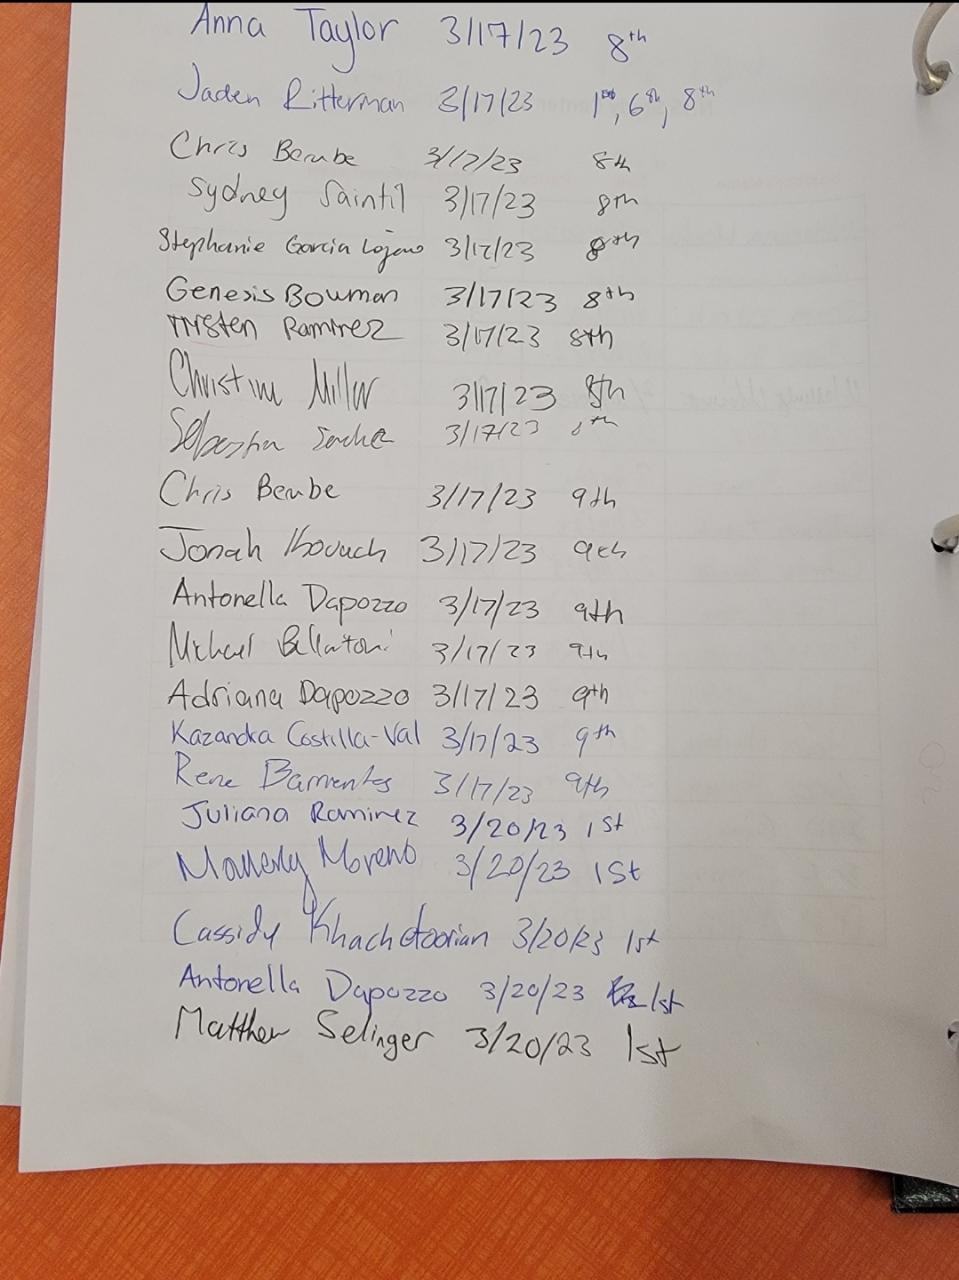 Anna Taylor 3/17/23 8th
Jaden Ritterman 3/17/23 1st, 6th, 8th
Chris Berube 3/17/23 8th
Sydney Saintil 3/17/23 8th
Stephanie Garcia Lojano 3/17/23 8th
Genesis Bowman 3/17/23 8th
Ramirez 3/17/23 8th
Miller 3/17/23 8th
3/17/23 8th
Chris Berube 3/17/23 9th
Jonah 3/17/23 9th
Antonella Dapozzo 3/17/23 9th
Michael 3/17/23 9th
Adriana Dapozzo 3/17/23 9th
Kazandra Costilla-Val 3/17/23 9th
Rene Barrientes 3/17/23 9th
Juliana Ramirez 3/20/23 1st
Moreno 3/20/23 1st
Cassidy Khachetoorian 3/20/23 1st
Antonella Dapozzo 3/20/23 1st
Matthew Selinger 3/20/23 1st